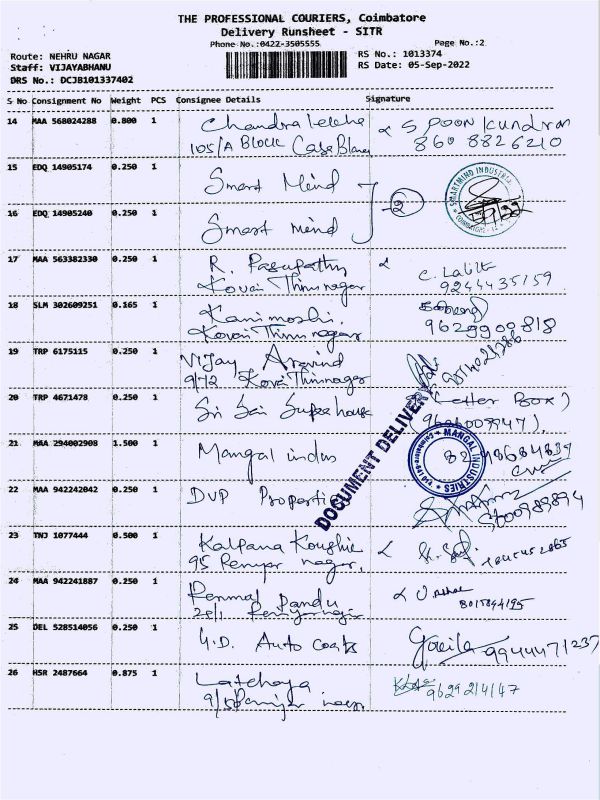 THE PROFESSIONAL COURIERS, Coimbatore
Delivery Runsheet - SITR
Phone No.:0422-3505555
Page No.:2
Route: NEHRU NAGAR
Staff: VIJAYABHANU
DRS No.: DCJB101337402
RS No.: 1013374
RS Date: 05-Sep-2022
S No Consignment No Weight PCS Consignee Details Signature
14 MAA 568024288 0.800 1 Chandralekha S POON Kundran
105/A Block 860 8826210
15 EDQ 14905174 0.250 1 Smart Mind
SMARTMIND INDUSTRIES
2
16 EDQ 14905240 0.250 1 Smart Mind
17 MAA 563382330 0.250 1 R. Pasupathy C. Lalit
Kovai Thirunagar 9244435159
18 SLM 302609251 0.165 1 Kanimoshi.
Kovai Thirunagar 9629900818
19 TRP 6175115 0.250 1 Vijay Aravind
9/72 Kovai Thirunagar
20 TRP 4671478 0.250 1 Sri Sai Super house (Letter Box)
DOCUMENT DELIVER
21 MAA 294002908 1.500 1 Mangal indus
MANGAL INDUSTRIES
22 MAA 942242042 0.250 1 DVP
23 TNJ 1077444 0.500 1 Kalpana Koushic
95 nagar,
24 MAA 942241887 0.250 1 Perumal Pandu
25 DEL 528514056 0.250 1 G.D. Auto Coats 9944471237
26 HSR 2487664 0.875 1 9629214147